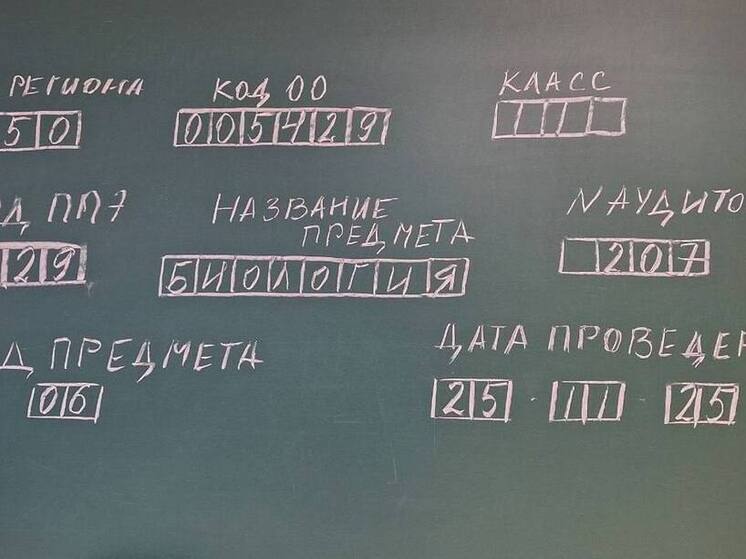 РЕГИОНА КОД ОО КЛАСС
50 005429 11
Д ПП7 НАЗВАНИЕ NАУДИТО
ПРЕДМЕТА
29 БИОЛОГИЯ 207
Д ПРЕДМЕТА ДАТА ПРОВЕДЕ
06 25 · 11 · 25